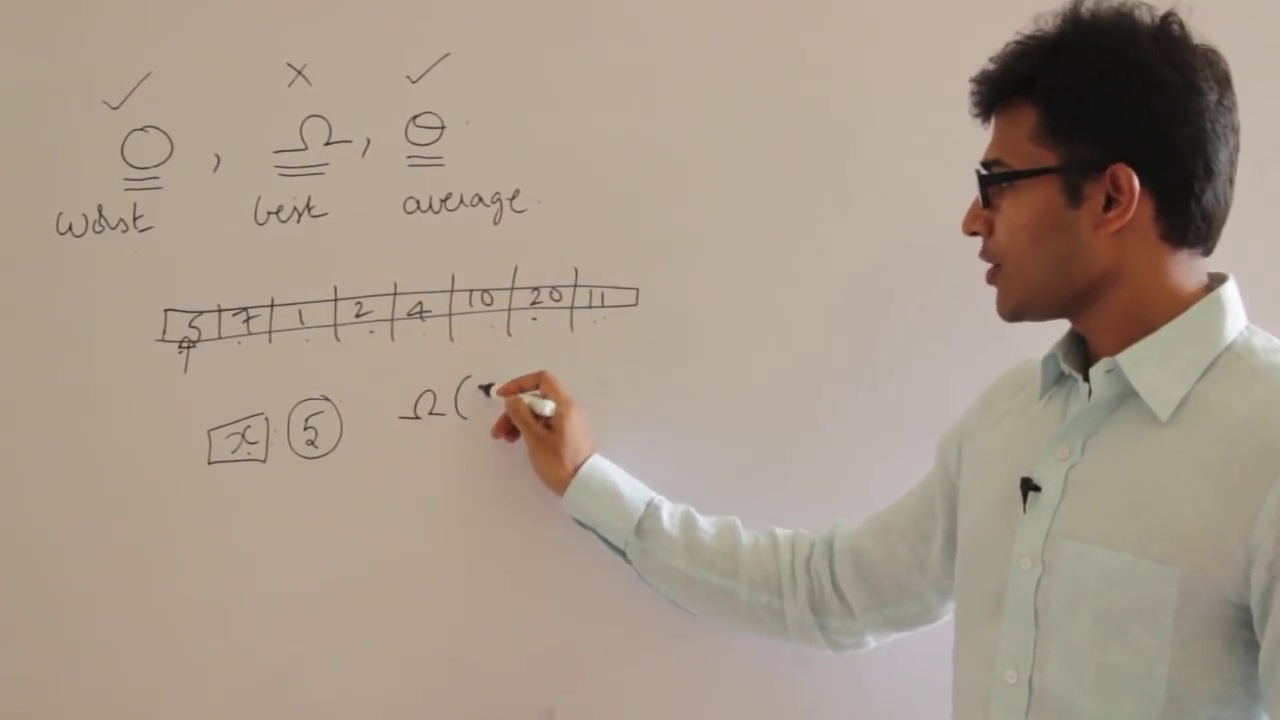 O, Ω, Θ
worst best average
5 7 1 2 4 10 20 11
x 5 Ω(